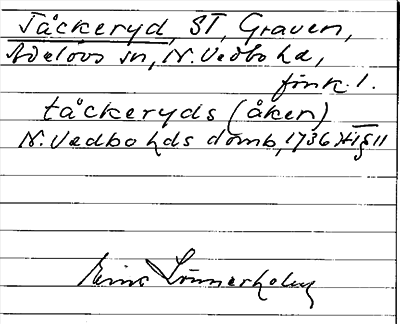 Tåckeryd, ST, Graven,
Adelövs sn, N. Vedbo hd,
Jönk. l.
tåckeryds (åken)
N. Vedbo hds domb, 1736 Ht § 11
Einar Lönnerholm